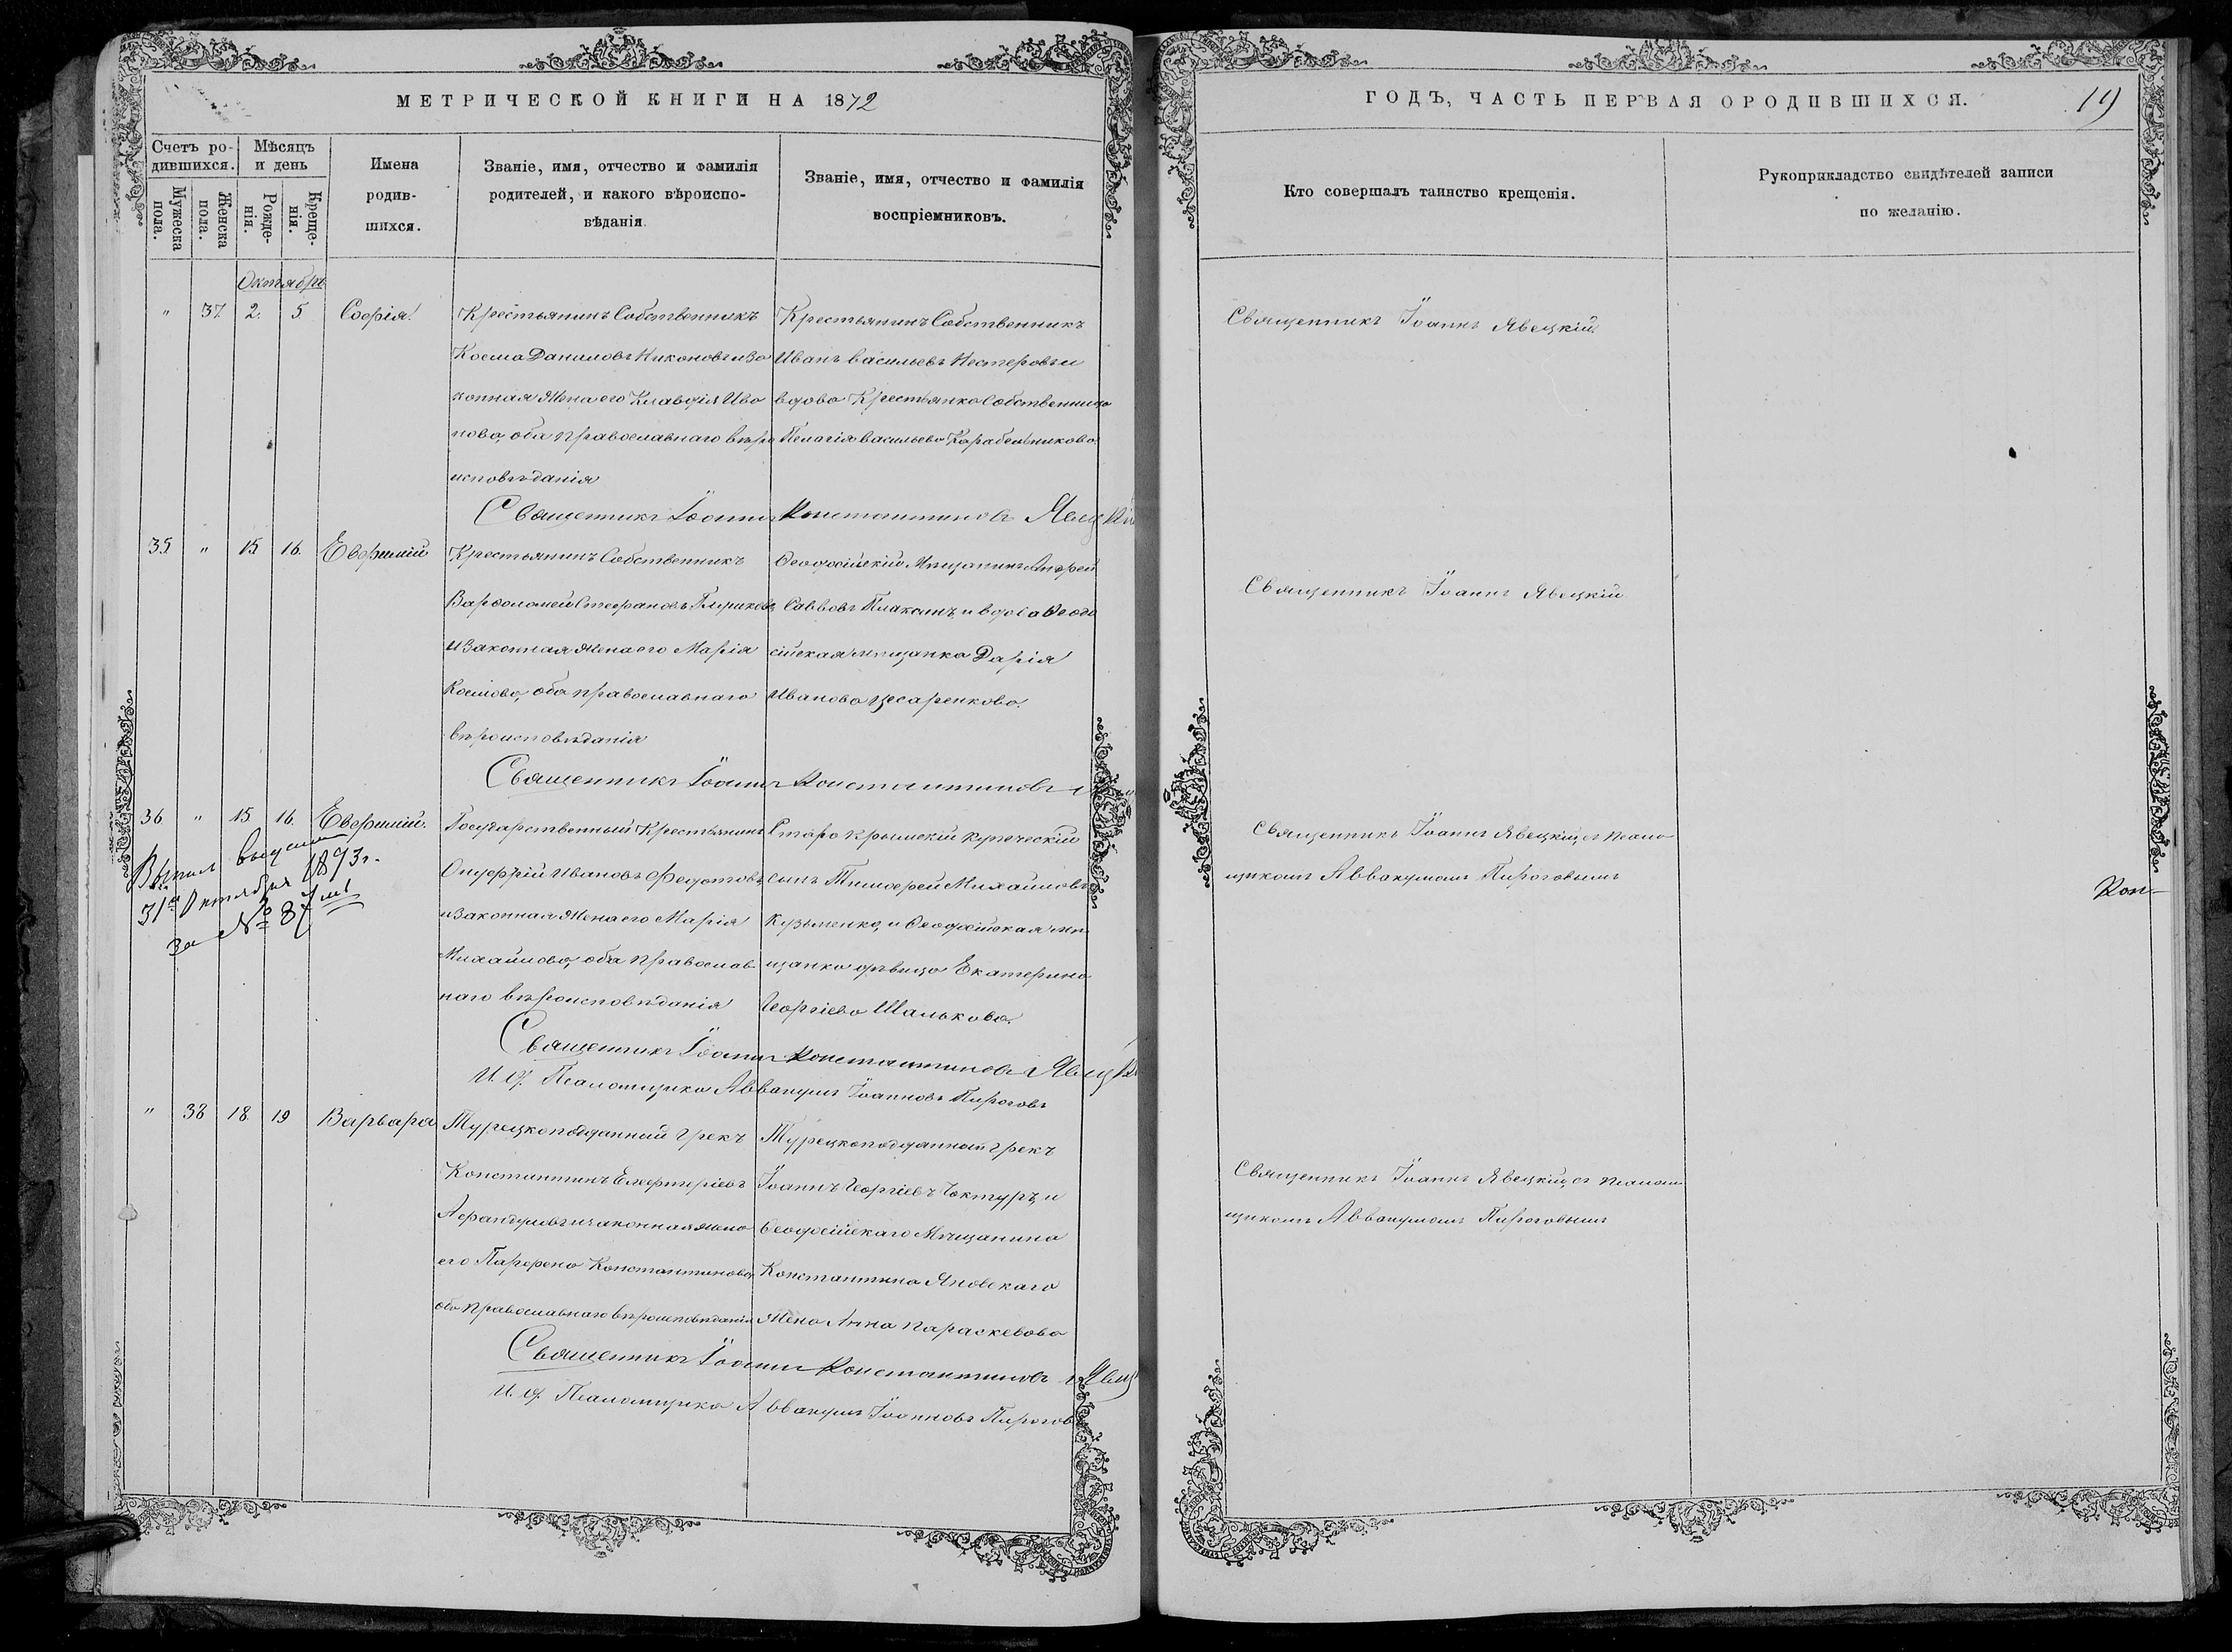 МЕТРИЧЕСКОЙ КНИГИ НА 1872
Счетъ ро-
дившихся.
Мѣсяцъ
и день
Мужеска
пола.
Женска
пола.
Рожде-
нія.
Креще-
нія.
Имена
родив-
шихся.
Званіе, имя, отчество и фамилія
родителей, и какого вѣроиспо-
вѣданія.
Званіе, имя, отчество и фамилія
воспріемниковъ.
Октябрь
" 37. 2. 5 Софія.
Крестьянинъ Собственникъ
Косма Даниловъ Никоновъ и за
конная жена его Клавдія Ива
нова, оба православнаго вѣро
исповѣданія
Крестьянинъ Собственникъ
Иванъ Васильевъ Нестеровъ и
вдова Крестьянка Собственница
Пелагія Васильева Карабельникова.
Священникъ Іоаннъ Константиновъ Явецкій
35 " 15 16. Евфимій
Крестьянинъ Собственникъ
Варфоломей Стефановъ
и законная жена его Марія
Космова, оба православнаго
вѣроисповѣданія
Ѳеодосійскій Мѣщанинъ Андрей
Саввовъ Плаксинъ, и вдова Ѳеодо
сійская мѣщанка Дарія
Иванова Цесаренкова.
Священникъ Іоаннъ Константиновъ
36 " 15 16. Евфимій.
Выпись выдана
31го Октября 1893 г.
за № 87мъ
Государственный Крестьянинъ
Онуфрій Ивановъ Федотовъ,
и законная жена его Марія
Михайлова, оба православ
наго вѣроисповѣданія
Старокрымскій купеческій
сынъ Тимофей Михайловъ
Кузьменко, и Ѳеодосійская мѣ
щанка дѣвица Екатерина
Георгіева Шалькова.
Священникъ Іоаннъ Константиновъ Явецкій
И. д. Псаломщика Аввакумъ Іоанновъ Пироговъ
" 38 18 19 Варвара
Турецкоподданный грекъ
Константинъ Елефтеріевъ
и законная жена
его Парфена Константинова,
оба православнаго вѣроисповѣданія
Турецкоподданный грекъ
Іоаннъ Георгіевъ Чоктуръ, и
Ѳеодосійскаго Мѣщанина
Константина Яновскаго
жена Анна Параскевова
Священникъ Іоаннъ Константиновъ Явец
И. д. Псаломщика Аввакумъ Іоанновъ Пирогов
ГОДЪ, ЧАСТЬ ПЕРВАЯ О РОДИВШИХСЯ. 19
Кто совершалъ таинство крещенія.
Рукоприкладство свидѣтелей записи
по желанію.
Священникъ Іоаннъ Явецкій
Священникъ Іоаннъ Явецкій
Священникъ Іоаннъ Явецкій, съ псалом
щикомъ Аввакумомъ Пироговымъ
Кон-
Священникъ Іоаннъ Явецкій, съ псалом
щикомъ Аввакумомъ Пироговымъ